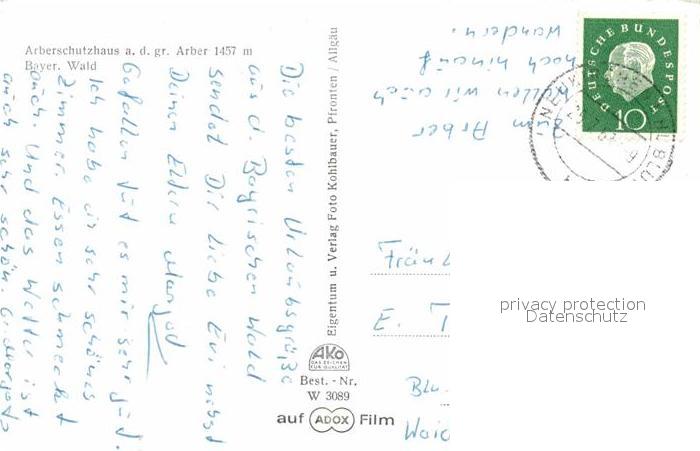 Arberschutzhaus a. d. gr. Arber 1457 m
Bayer. Wald
Die besten Urlaubsgrüße
aus d. Bayrischen Wald
sendet Dir liebe Evi nebst
Deinen Eltern Margot
Gefallen tut es mir sehr gut.
Ich habe ein sehr schönes
Zimmer. Essen schmeckt
auch. Und das Wetter ist
auch sehr schön.
Zum Arber
wollen wir auch
noch hinauf
wandern.
Eigentum u. Verlag Foto Kohlbauer, Pfronten / Allgäu
AKO
DAS ZEICHEN
FÜR QUALITÄT
Best. - Nr.
W 3089
auf ADOX Film
DEUTSCHE BUNDESPOST
10
Fräul
E. T
Blu.
Waid
privacy protection
Datenschutz